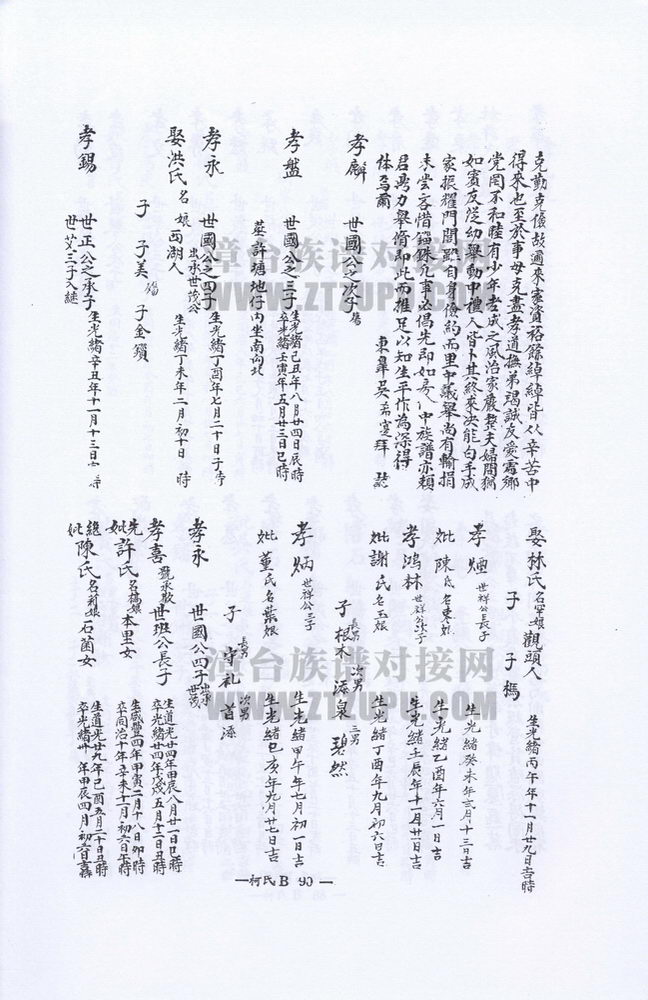 克勤克儉故邇來家資裕餘綽綽皆從辛苦中
得來也至於事母克盡孝道撫弟竭誠友愛處鄉
党罔不和睦有少年老成之風治家嚴整夫婦間猶
如賓反從幼舉動中禮人皆卜其終來决能白手成
家振耀門閭雖自身儉約而里中議舉尚有輸捐
未尝吝惜錙銖凡事必倡先即如房中族譜亦賴
君馬力舉脩即此而推足以知生平作為深得
体
東皐吳 拜
孝麟 世國公之次子
孝盤 世國公之三子 生光緒己丑年八月廿四日辰時
卒光緒壬寅年五月廿三日巳時
葬許塘地仔内坐南向北
孝永 世國公之四子 生光緒丁酉年七月二十日子時
出承世茂公
娶洪氏名娘西湖人 生光緒丁未年二月初十日 時
子 子美 子金鑽
孝錫 世正公之承子 生光緒辛丑年十一月十三日 時
世艾三子入继
娶林氏名罕娘觀頭人 生光緒丙午年十一月廿九日吉時
子 子楓
孝煙 世祥公長子 生光緒癸未年 月十三日吉時
妣陳氏名枣娘 生光緒乙酉年六月 日吉
孝鴻林 世祥公次子 生光緒壬辰年十一月廿一日吉
妣謝氏名玉娘 生光緒丁酉年九月初六日吉
子 長男根木 次男添泉 三男碧然
孝炳 世祥公三子 生光緒甲午年七月初一日吉時
妣董氏名葉娘 生光緒 年九月廿七日吉
子 長男守礼 次男首添
孝永 世國公四子 出承世茂
孝喜 號承歡 世班公長子 生道光廿四年甲辰八月廿一日巳時
卒光緒廿四年戊戌五月十二日丑時
先妣許氏名橋娘本里女 生咸豐四年甲寅二月十八日卯時
卒同治十年辛未十一月初六日午時
繼妣陳氏名莉娘石菌女 生道光廿九年己酉五月二十日丑時
卒光緒卅 年甲辰四月初六日
漳台族谱对接网
WWW.ZTZUPU.COM
漳台族谱对接网
WWW.ZTZUPU.COM
—柯氏B 90—